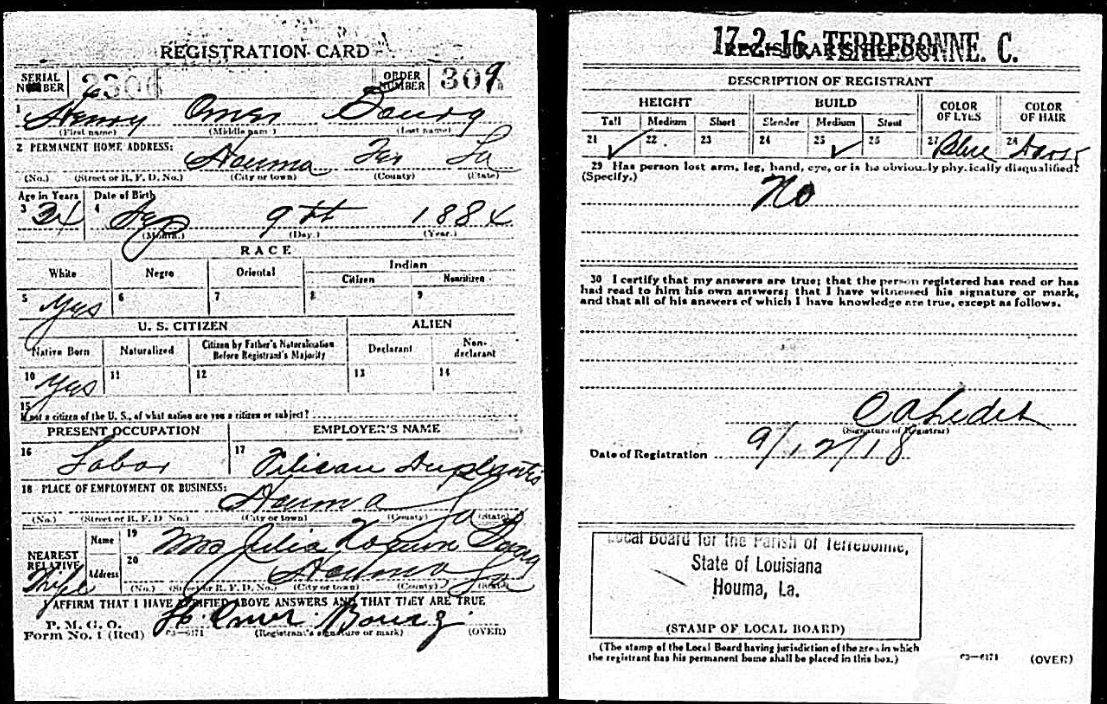 REGISTRATION CARD
SERIAL NUMBER 3306 ORDER NUMBER 309
1 Henry Omer Bourg
(First name) (Middle name) (Last name)
2 PERMANENT HOME ADDRESS: Houma Ter La
(No.) (Street or R. F. D. No.) (City or town) (County) (State)
Age in Years Date of Birth
3 34 4 Sep 9th 1884
(Month.) (Day.) (Year.)
RACE
White Negro Oriental Indian
Citizen Noncitizen
5 Yes 6 7 8 9
U. S. CITIZEN ALIEN
Native Born Naturalized Citizen by Father's Naturalization Before Registrant's Majority Declarant Non-declarant
10 Yes 11 12 13 14
15
If not a citizen of the U. S., of what nation are you a citizen or subject?
PRESENT OCCUPATION EMPLOYER'S NAME
16 Labor 17 Duplantis
18 PLACE OF EMPLOYMENT OR BUSINESS:
Houma La
(No.) (Street or R. F. D. No.) (City or town) (County) (State)
NEAREST RELATIVE Name 19 Mrs Julia Bourg
Wife Address 20 Houma La
(No.) (Street or R. F. D. No.) (City or town) (County) (State)
I AFFIRM THAT I HAVE VERIFIED ABOVE ANSWERS AND THAT THEY ARE TRUE
P. M. G. O.
Form No. 1 (Red) 03—6171 H. Omer Bourg
(Registrant's signature or mark) (OVER)
17-2-16 TERREBONNE. C.
REGISTRAR'S REPORT
DESCRIPTION OF REGISTRANT
HEIGHT BUILD COLOR OF EYES COLOR OF HAIR
Tall Medium Short Slender Medium Stout
21 ✓ 22 23 24 25 ✓ 26 27 Blue 28
29 Has person lost arm, leg, hand, eye, or is he obviously physically disqualified?
(Specify.)
No
30 I certify that my answers are true; that the person registered has read or has
had read to him his own answers; that I have witnessed his signature or mark,
and that all of his answers of which I have knowledge are true, except as follows.
C A Ledet
(Signature of Registrar)
Date of Registration 9/12/18
Local Board for the Parish of Terrebonne,
State of Louisiana
Houma, La.
(STAMP OF LOCAL BOARD)
(The stamp of the Local Board having jurisdiction of the area in which
the registrant has his permanent home shall be placed in this box.)
03—6171 (OVER)